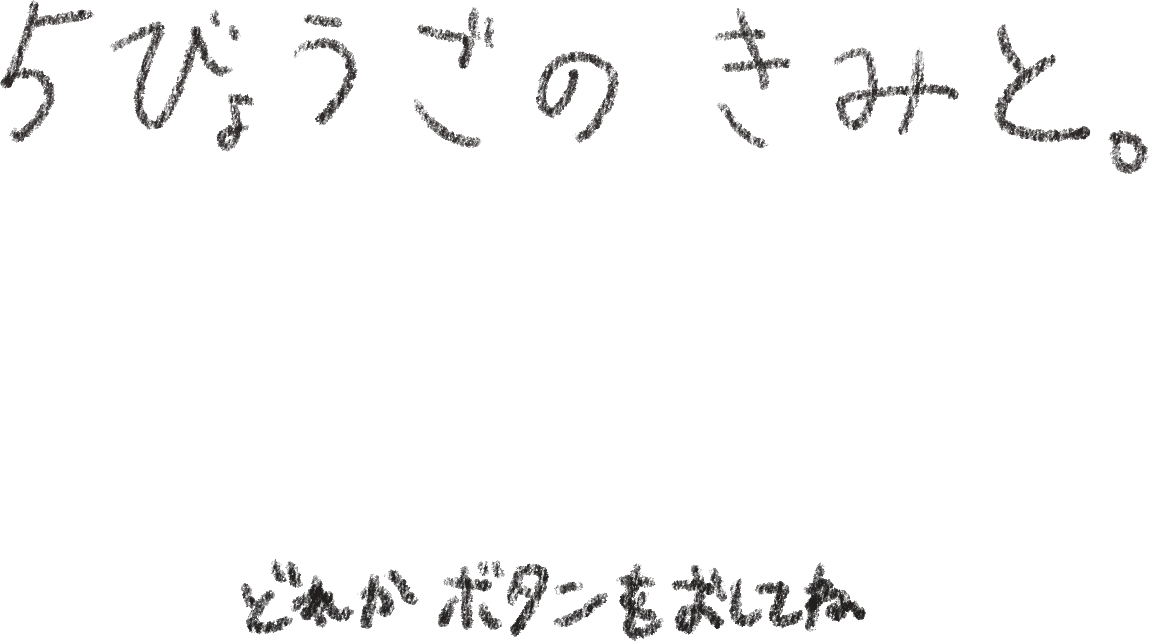 5びょうごの きみと。
どれか ボタンをおしてね